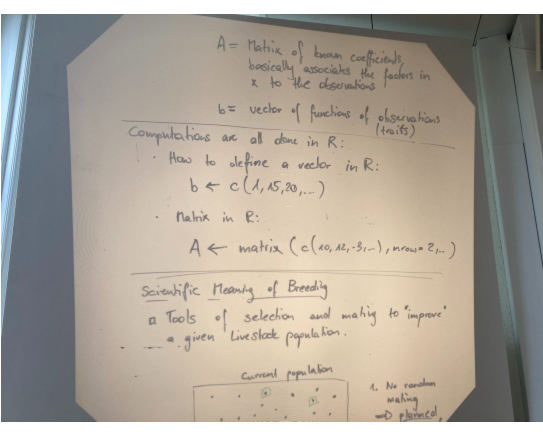 A = Matrix of known coefficients,
basically associates the factors in
x to the observations
b = vector of functions of observations
(traits)
Computations are all done in R:
· How to define a vector in R:
b ← c(1, 15, 20, ...)
· Matrix in R:
A ← matrix (c(10, 12, -3, ...), nrow = 2, ...)
Scientific Meaning of Breeding
□ Tools of selection and mating to "improve"
a given Livestock population.
Current population
1. No random
mating
⇒ planned